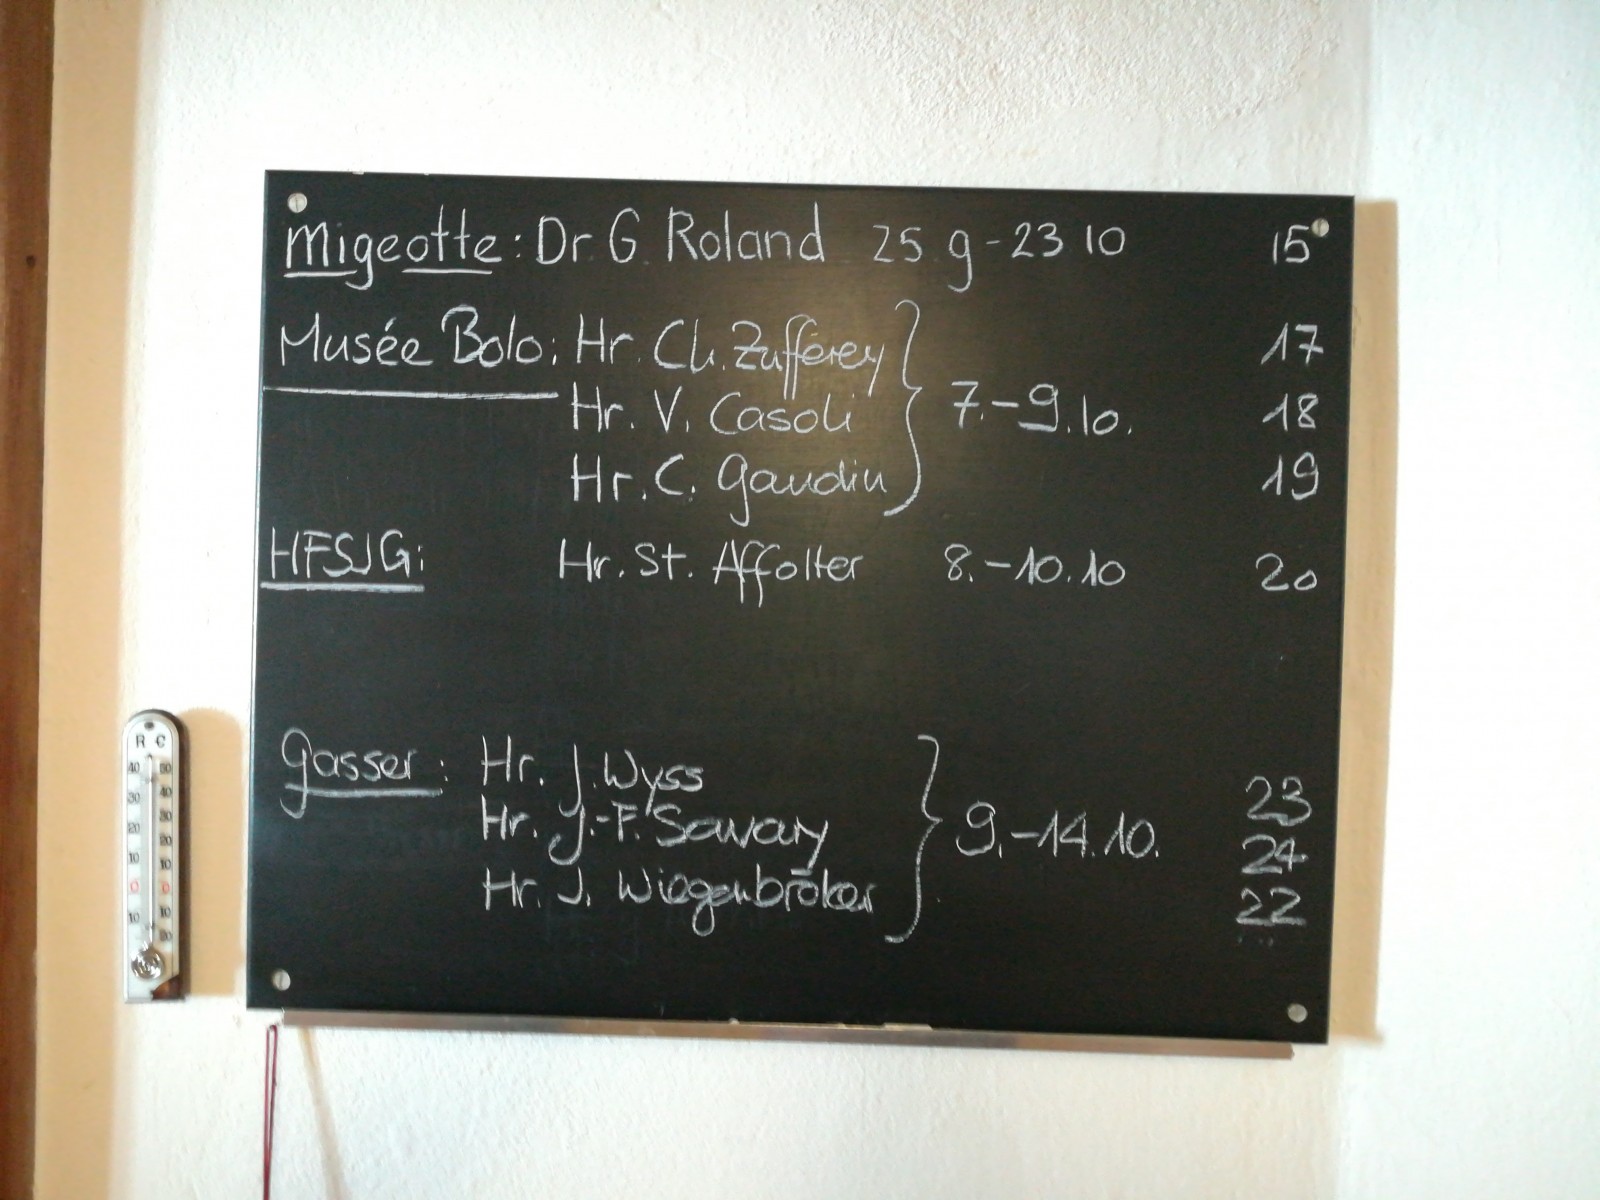 Migeotte: Dr. G. Roland 25.9-23 10 15
Musée Bolo: Hr. Ch. Zufferey 17
Hr. V. Casoli 7.-9.10. 18
Hr. C. Gaudin 19
HFSJG: Hr. St. Affolter 8.-10.10 20
Gasser: Hr. J. Wyss 23
Hr. J.-F. Savary 9.-14.10. 24
Hr. J. Wiegenbröker 22
R C
40 50
30 40
20 30
10 20
0 10
10 0
10
20